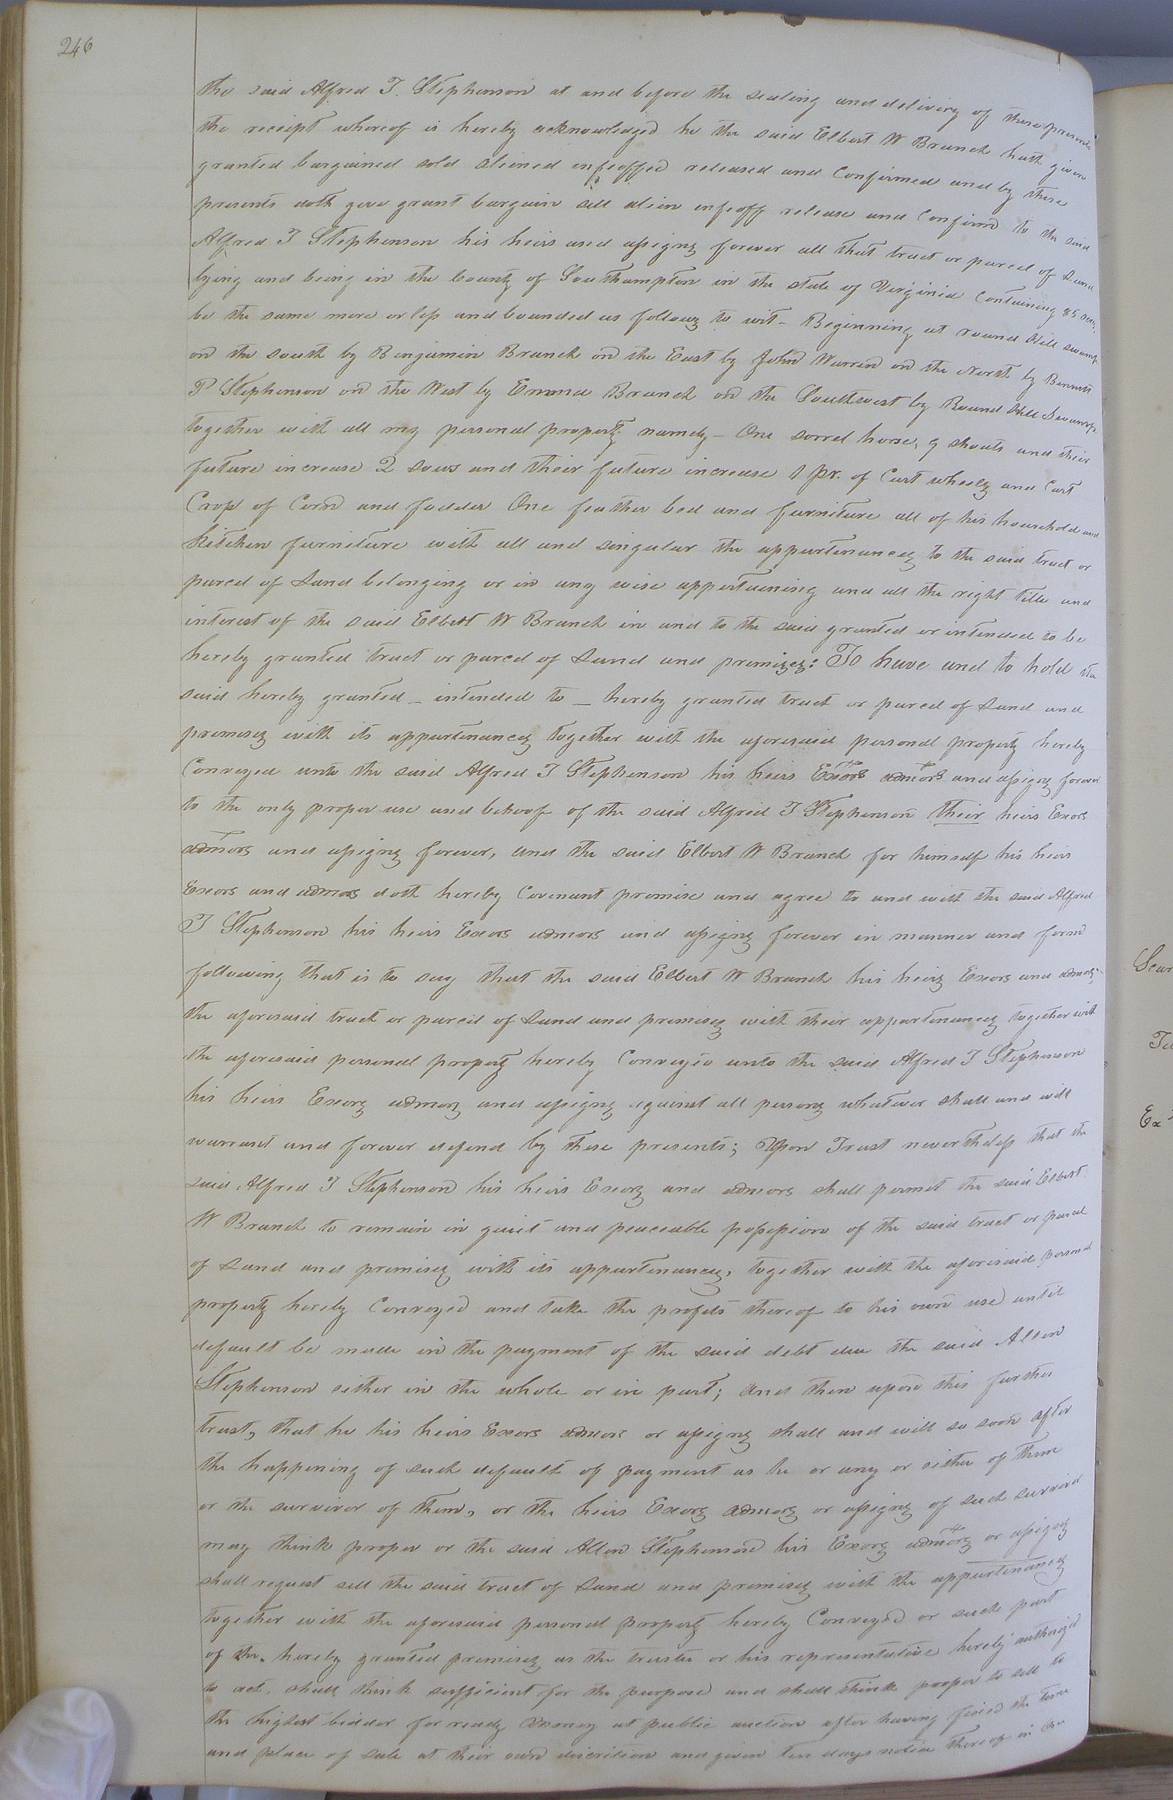 246
the said Alfred T. Stephenson at and before the sealing and delivery of these presents
the receipt whereof is hereby acknowledged he the said Elbert W Branch hath given
granted bargained sold aliened enfeoffed released and Confirmed and by these
presents doth give grant bargain sell alien enfeoff release and Confirm to the said
Alfred T Stephenson his heirs and assigns forever all that tract or parcel of Land
lying and being in the County of Southampton in the state of Virginia Containing 85 acres
be the same more or less and bounded as follows to wit - Beginning at round Hill swamp
on the south by Benjamin Branch on the East by John Warren on the North by Bennett
P Stephenson on the West by Emma Branch on the Southwest by Round Hill Swamp
together with all my personal property namely - One sorrel horse, 9 shoats and their
future increase 2 sows and their future increase 1 pr. of Cart wheels and Cart
Crop of Corn and fodder One feather bed and furniture all of his household and
Kitchen furniture with all and singular the appurtenances to the said tract or
parcel of Land belonging or in any wise appertaining and all the right title and
interest of the said Elbert W Branch in and to the said granted or intended to be
hereby granted tract or parcel of Land and premises: To have and to hold the
said hereby granted - intended to - hereby granted tract or parcel of Land and
premises with its appurtenances together with the aforesaid personal property hereby
Conveyed unto the said Alfred T Stephenson his heirs Exors admors and assigns forever
to the only proper use and behoof of the said Alfred T Stephenson their heirs Exors
admors and assigns forever, and the said Elbert W Branch for himself his heirs
Exors and admors doth hereby Covenant promise and agree to and with the said Alfred
T Stephenson his heirs Exors admors and assigns forever in manner and form
following that is to say that the said Elbert W Branch his heirs Exors and admors
the aforesaid tract or parcel of Land and premises with their appurtenances together with
the aforesaid personal property hereby Conveyed unto the said Alfred T Stephenson
his heirs Exors admors and assigns against all persons whatever shall and will
warrant and forever defend by these presents; Upon Trust nevertheless that the
said Alfred T Stephenson his heirs Exors and admors shall permit the said Elbert
W Branch to remain in quiet and peaceable possession of the said tract or parcel
of Land and premises with its appurtenances, together with the aforesaid personal
property hereby Conveyed and take the profits thereof to his own use until
default be made in the payment of the said debt due the said Allen
Stephenson either in the whole or in part; and then upon this further
trust, that he his heirs Exors admors or assigns shall and will so soon after
the happening of such default of payment as he or any or either of them
or the survivor of them, or the heirs Exors admors or assigns of such survivor
may think proper or the said Allen Stephenson his Exors admors or assigns
shall request sell the said tract of Land and premises with the appurtenances
together with the aforesaid personal property hereby Conveyed or such part
of the hereby granted premises as the trustee or his representative hereby authorized
to act. shall think sufficient for the purpose and shall think proper to sell to
the highest bidder for ready money at public auction after having fixed the time
and place of sale at their own discretion and given ten days notice thereof in
Ex